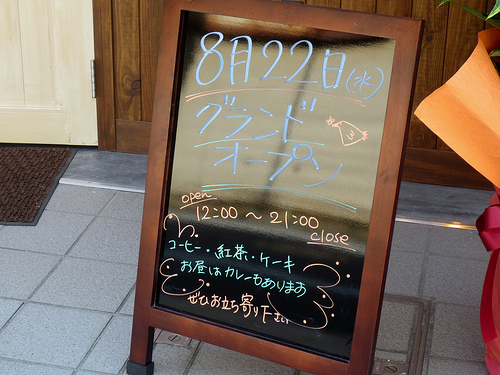 8月22日(水)
グランド
オープン
open
12:00 〜 21:00
close
コーヒー・紅茶・ケーキ
お昼はカレーもあります
ぜひお立ち寄り下さい